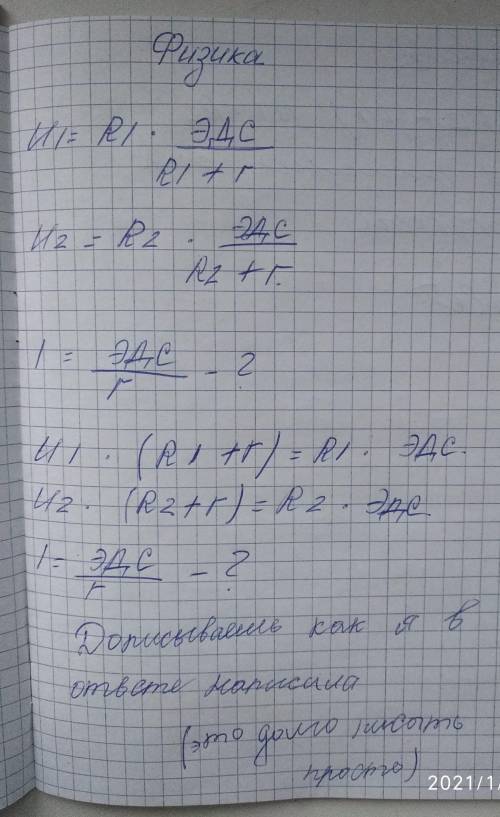 Физика
U1 = R1 · ЭДС
R1 + r
U2 = R2 · ЭДС
R2 + r.
I = ЭДС - ?
r
U1 · (R1 + r) = R1 · ЭДС.
U2 · (R2 + r) = R2 · ЭДС
I = ЭДС - ?
r
Дописываешь как я в
ответе написала
(это долго писать
просто)
2021/1/